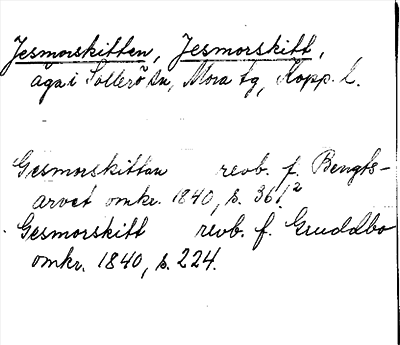 Jesmorskitten, Jesmorskitt,
äga i Sollerö sn, Mora tg, Kopp. l.
Gesmorskittan revb. f. Bengts-
arvet omkr. 1840, s. 361.²
Gesmorskitt revb. f. Gruddbo
omkr. 1840, s. 224.